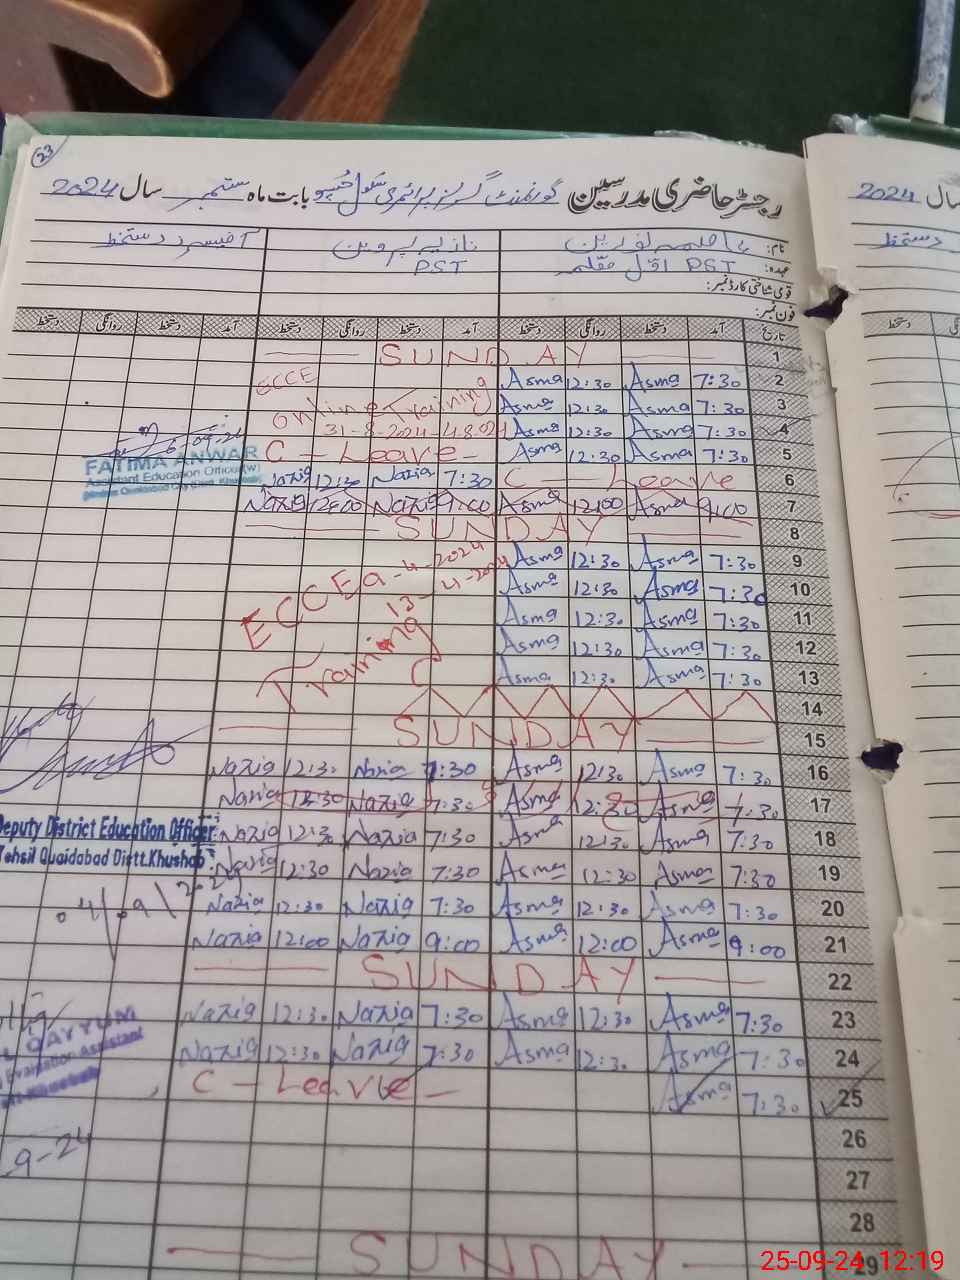 23
رجسٹر حاضری مدرسین گورنمنٹ گرلز پرائمری سکول بابت ماہ ستمبر سال 2024
2024 سال
نام: عاصمہ نورین نازیہ پروین آفیسرز دستخط
دستخط
عہدہ: PST اول معلمہ PST
قومی شناختی کارڈ نمبر:
فون نمبر:
تاریخ آمد دستخط روانگی دستخط آمد دستخط روانگی دستخط آمد دستخط روانگی دستخط
دستخط
1 SUNDAY
2 7:30 Asma 12:30 Asma ECCE
3 7:30 Asma 12:30 Asma Online Training
4 7:30 Asma 12:30 Asma 31-8-2024
5 7:30 Asma 12:30 Asma C-Leave
FATIMA ANWAR
Assistant Education Officer (w)
6 C-Leave 7:30 Nazia 12:30 Nazia
7 9:00 Asma 12:00 Asma 9:00 Nazia 12:00 Nazia
8 SUNDAY
9 7:30 Asma 12:30 Asma
10 7:30 Asma 12:30 Asma
11 7:30 Asma 12:30 Asma
12 7:30 Asma 12:30 Asma
13 7:30 Asma 12:30 Asma
ECCE
Training
14
15 SUNDAY
16 7:30 Asma 12:30 Asma 7:30 Nazia 12:30 Nazia
17 7:30 Asma 12:30 Asma 7:30 Nazia 12:30 Nazia
18 7:30 Asma 12:30 Asma 7:30 Nazia 12:30 Nazia
Deputy District Education Officer
Tehsil Quaidabad Distt. Khushab
19 7:30 Asma 12:30 Asma 7:30 Nazia 12:30 Nazia
20 7:30 Asma 12:30 Asma 7:30 Nazia 12:30 Nazia
21 9:00 Asma 12:00 Asma 9:00 Nazia 12:00 Nazia
22 SUNDAY
23 7:30 Asma 12:30 Asma 7:30 Nazia 12:30 Nazia
24 7:30 Asma 12:30 Asma 7:30 Nazia 12:30 Nazia
QAYYUM
Assistant
25 7:30 Asma C-Leave
26
9-24
27
28
29 SUNDAY
25-09-24 12:19